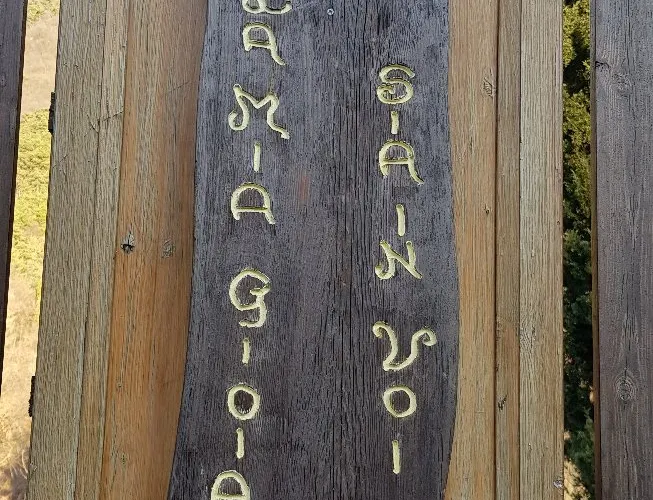 LA MIA GIOIA
SIA IN VOI